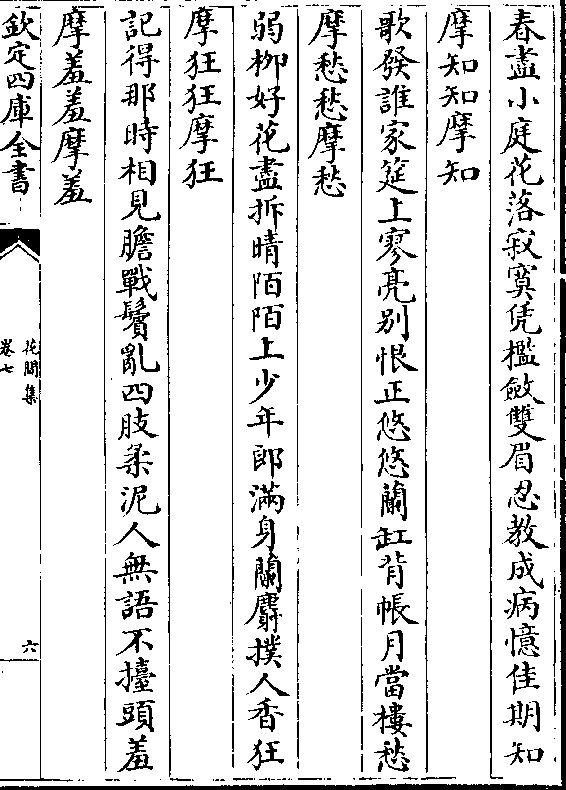 春盡小庭花落寂寞凭檻斂雙眉忍教成病憶佳期知
摩知知摩知
歌發誰家筵上寥亮别恨正悠悠蘭缸背帳月當樓愁
摩愁愁摩愁
弱栁好花盡拆晴陌陌上少年郎滿身蘭麝撲人香狂
摩狂狂摩狂
記得那時相見膽戰鬢亂四肢柔泥人無語不擡頭羞
摩羞羞摩羞
欽定四庫全書
花間集
卷七
六